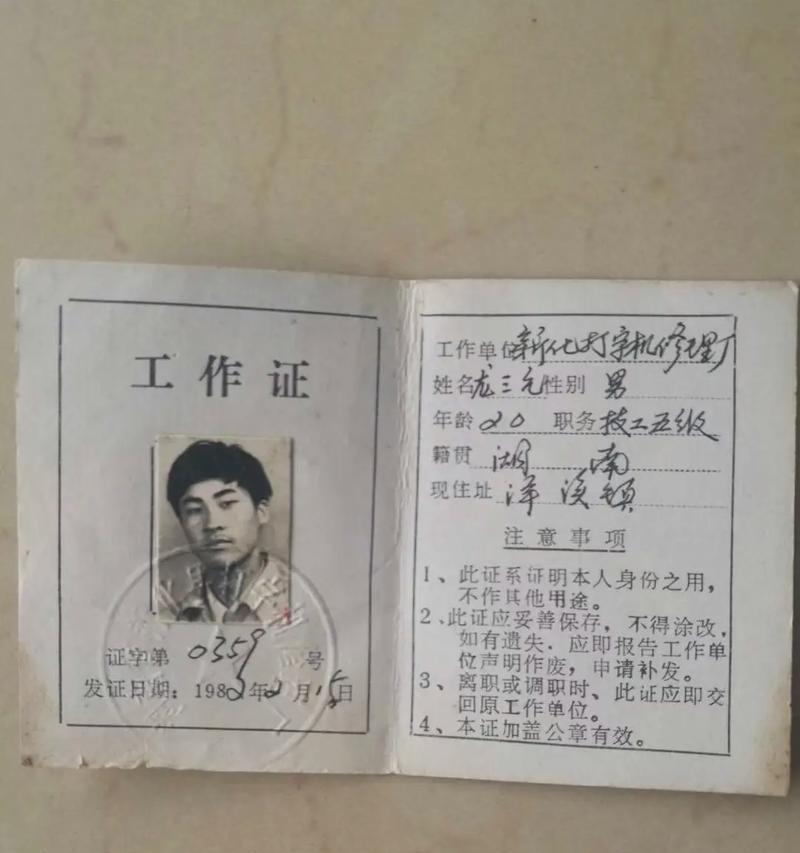 工作证
证字第 0359 号
发证日期：1982年2月15日
工作单位 新化打字机修理厂
姓名 龙三元 性别 男
年龄 20 职务 技工五级
籍贯 湖 南
现住址 洋溪镇
注意事项
1、此证系证明本人身份之用，
不作其他用途。
2、此证应妥善保存，不得涂改，
如有遗失．应即报告工作单
位声明作废，申请补发。
3、离职或调职时、此证应即交
回原工作单位。
4、本证加盖公章有效。